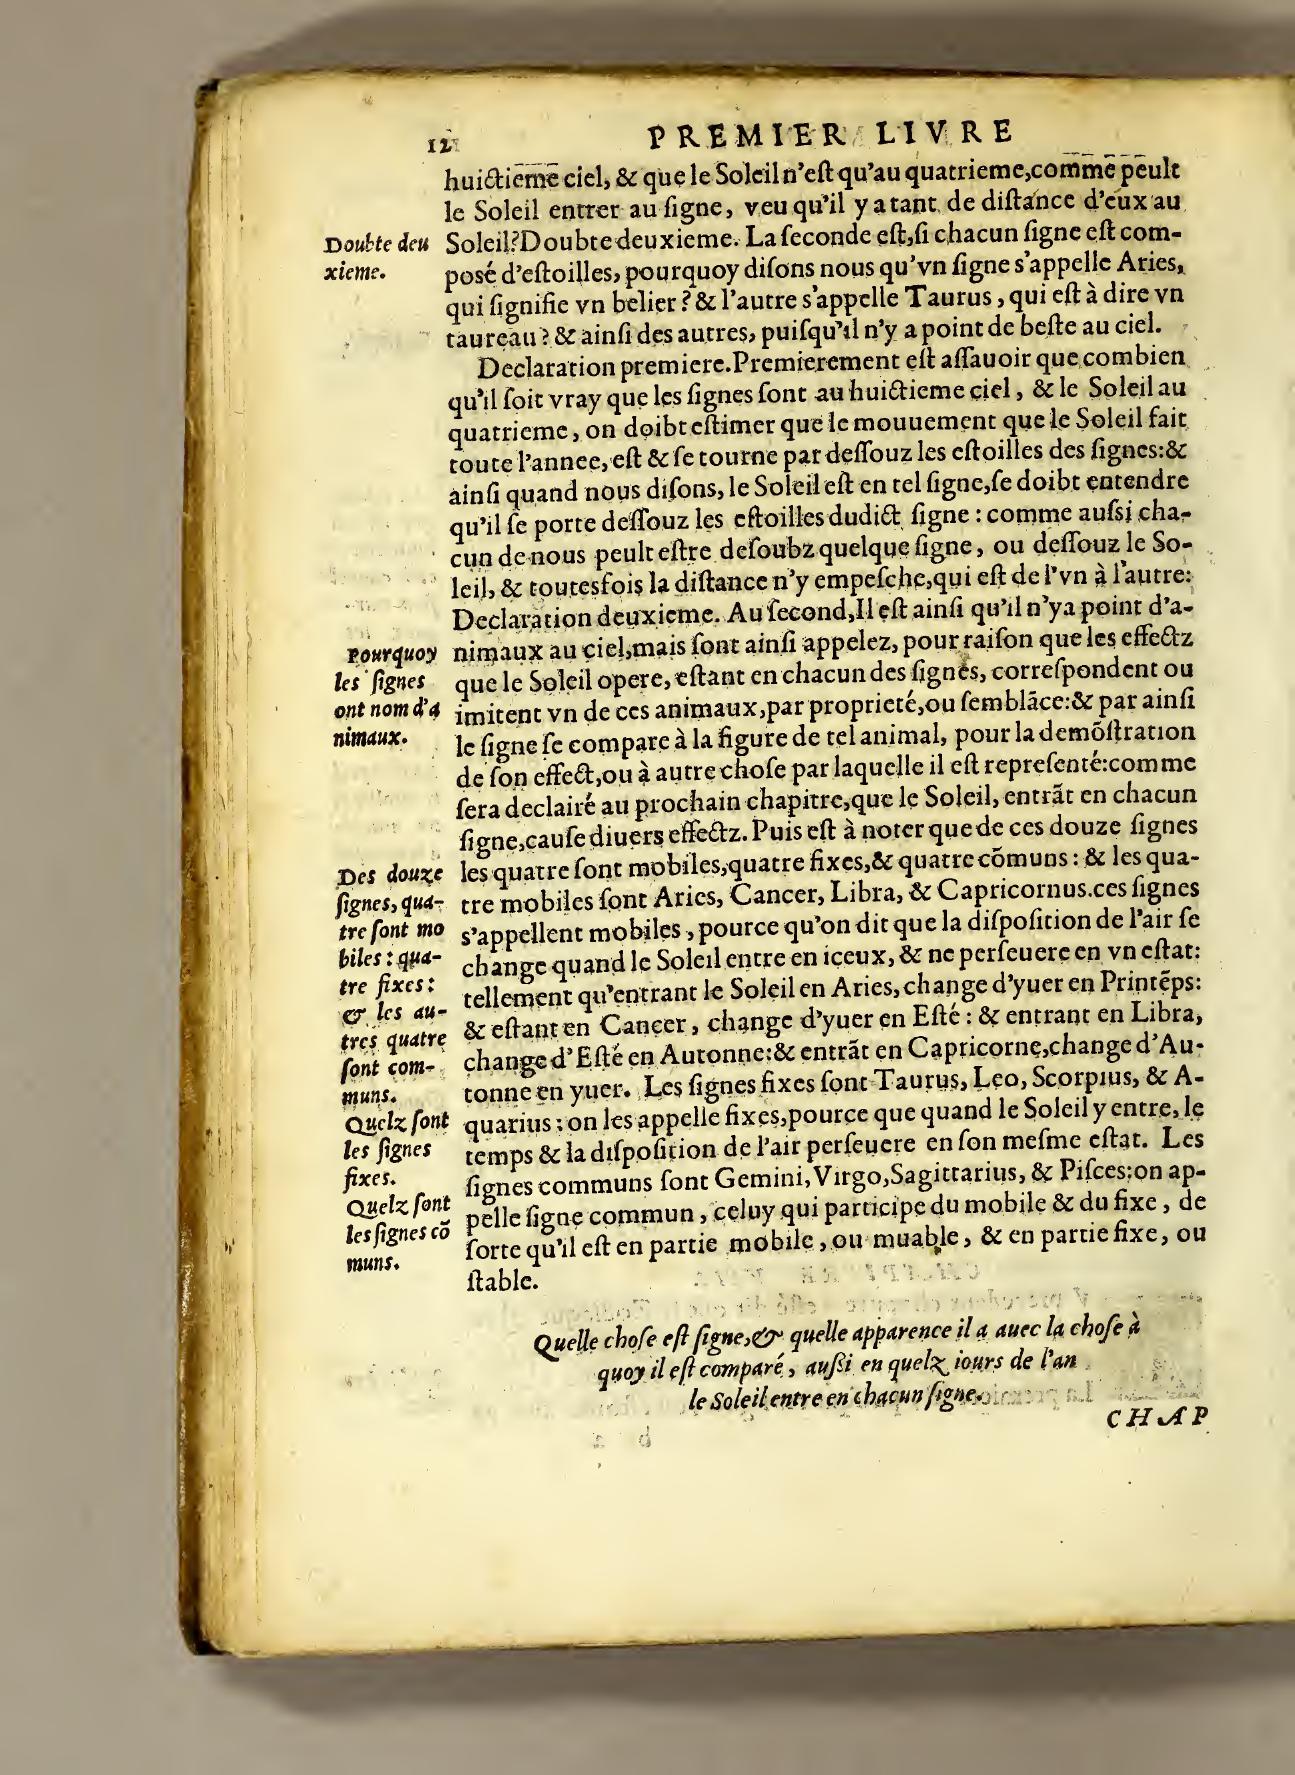 12 PREMIER LIVRE
huictieme ciel, & que le Soleil n'eſt qu'au quatrieme,comme peult
le Soleil entrer au ſigne, veu qu'il y a tant de diſtance d'eux au
Soleil?Doubte deuxieme. La ſeconde eſt,ſi chacun ſigne eſt com-
poſé d'eſtoilles, pourquoy diſons nous qu'vn ſigne s'appelle Aries,
qui ſignifie vn belier ? & l'autre s'appelle Taurus , qui eſt à dire vn
taureau ? & ainſi des autres, puiſqu'il n'y a point de beſte au ciel.
Doubte deu
xieme.
Declaration premiere.Premierement eſt aſſauoir que combien
qu'il ſoit vray que les ſignes ſont au huictieme ciel , & le Soleil au
quatrieme , on doibt eſtimer que le mouuement que le Soleil fait
toute l'annee, eſt & ſe tourne par deſſouz les eſtoilles des ſignes:&
ainſi quand nous diſons, le Soleil eſt en tel ſigne,ſe doibt entendre
qu'il ſe porte deſſouz les eſtoilles dudict ſigne : comme auſsi cha-
cun de nous peult eſtre deſoubz quelque ſigne, ou deſſouz le So-
leil, & toutesfois la diſtance n'y empeſche,qui eſt de l'vn à l'autre:
Declaration deuxieme. Au ſecond,Il eſt ainſi qu'il n'ya point d'a-
nimaux au ciel,mais ſont ainſi appelez, pour raiſon que les effectz
que le Soleil opere, eſtant en chacun des ſignes, correſpondent ou
imitent vn de ces animaux,par proprieté,ou ſemblãce:& par ainſi
le ſigne ſe compare à la figure de tel animal, pour la demõſtration
de ſon effect,ou à autre choſe par laquelle il eſt repreſenté:comme
ſera declairé au prochain chapitre,que le Soleil, entrãt en chacun
ſigne,cauſe diuers effectz. Puis eſt à noter que de ces douze ſignes
les quatre ſont mobiles,quatre fixes,& quatre cõmuns : & les qua-
tre mobiles ſont Aries, Cancer, Libra, & Capricornus.ces ſignes
s'appellent mobiles , pource qu'on dit que la diſpoſition de l'air ſe
change quand le Soleil entre en iceux, & ne perſeuere en vn eſtat:
tellement qu'entrant le Soleil en Aries, change d'yuer en Printẽps:
& eſtant en Cancer , change d'yuer en Eſté : & entrant en Libra,
change d'Eſté en Autonne:& entrãt en Capricorne,change d'Au-
tonne en yuer. Les ſignes fixes ſont Taurus, Leo, Scorpius, & A-
quarius : on les appelle fixes,pource que quand le Soleil y entre, le
temps & la diſpoſition de l'air perſeuere en ſon meſme eſtat. Les
ſignes communs ſont Gemini,Virgo,Sagittarius, & Piſces:on ap-
pelle ſigne commun , celuy qui participe du mobile & du fixe , de
ſorte qu'il eſt en partie mobile , ou muable , & en partie fixe, ou
ſtable.
Pourquoy
les ſignes
ont nom d'a
nimaux.
Des douze
ſignes, qua-
tre ſont mo
biles : qua-
tre fixes :
& les au-
tres quatre
ſont com-
muns.
Quelz ſont
les ſignes
fixes.
Quelz ſont
les ſignes cõ
muns.
Quelle choſe eſt ſigne,& quelle apparence il a auec la choſe à
quoy il eſt comparé , auſsi en quelz iours de l'an
le Soleil entre en chacun ſigne.
CHAP